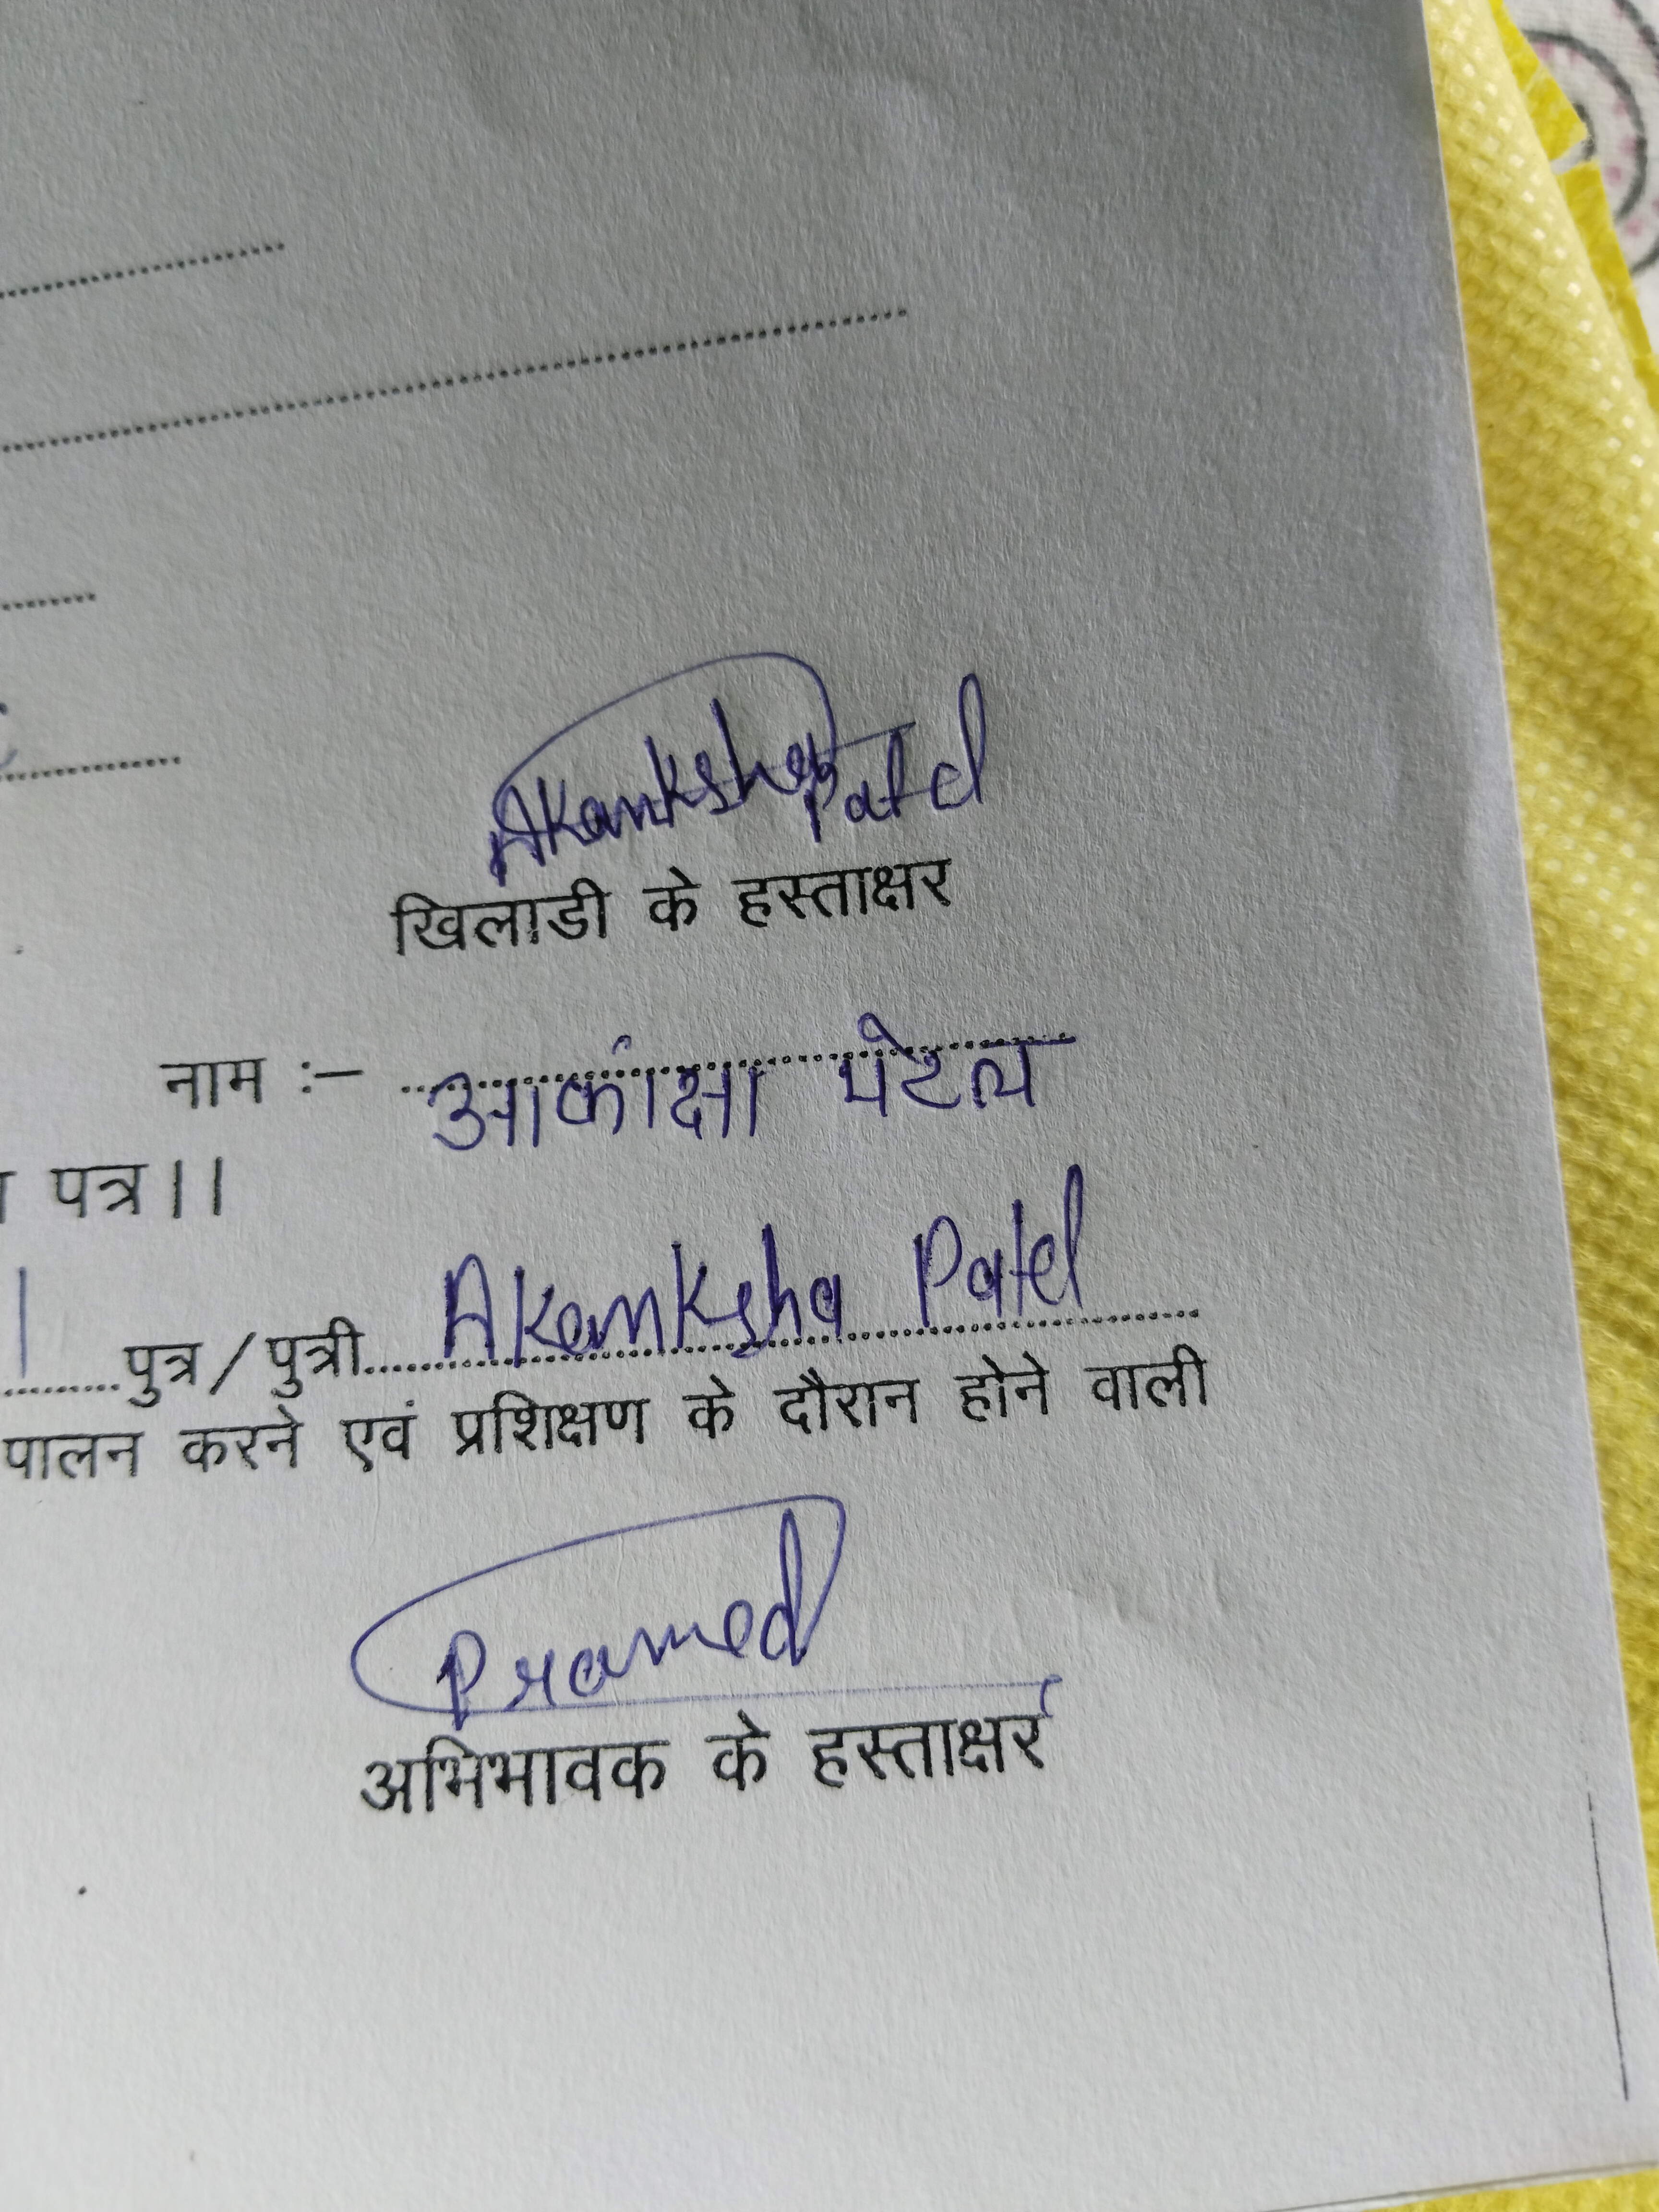 Akanksha Patel
खिलाडी के हस्ताक्षर
नाम :– आकांक्षा पटेल
पत्र।।
पुत्र/पुत्री Akanksha Patel
पालन करने एवं प्रशिक्षण के दौरान होने वाली
Pramod
अभिभावक के हस्ताक्षर